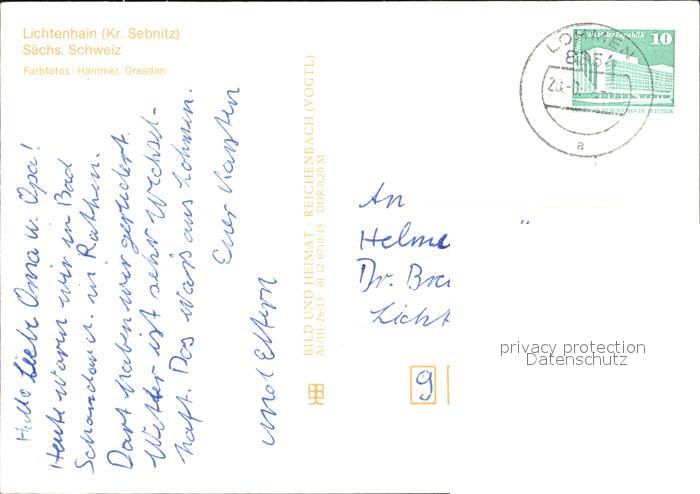 Lichtenhain (Kr. Sebnitz)
Sächs. Schweiz
Farbfotos: Hammer, Dresden
Hallo Liebe Oma u. Opa!
Heute waren wir in Bad
Schandau u. in Rathen.
Dort haben wir gerudert.
Wetter ist sehr wechsel-
haft. Das wars aus Lohmen.
Euer Karsten
und Eltern
BILD UND HEIMAT REICHENBACH (VOGTL)
A1/III/26/13 01 12 0710/15 DDR 0,20 M
LOHMEN
10
a
An
Helme
Dr.
Licht
9
privacy protection
Datenschutz